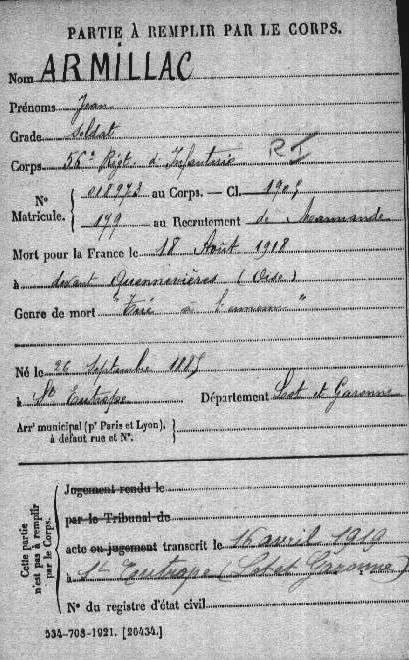 PARTIE À REMPLIR PAR LE CORPS.
Nom ARMILLAC
Prénoms Jean
Grade Soldat
Corps 56e Régt d'Infanterie RI
N° Matricule. { 018973 au Corps. — Cl. 1905
179 au Recrutement de Marmande
Mort pour la France le 18 Août 1918
à devant Quennevières (Oise)
Genre de mort "Tué à l'ennemi"
Né le 26 Septembre 1885
à St Eutrope Département Lot et Garonne
Arrt municipal (pr Paris et Lyon), à défaut rue et N°. }
Cette partie n'est pas à remplir par le Corps.
Jugement rendu le
par le Tribunal de
acte ou jugement transcrit le 16 avril 1919
à St Eutrope (Lot et Garonne)
N° du registre d'état civil
534-708-1921. [26434.]